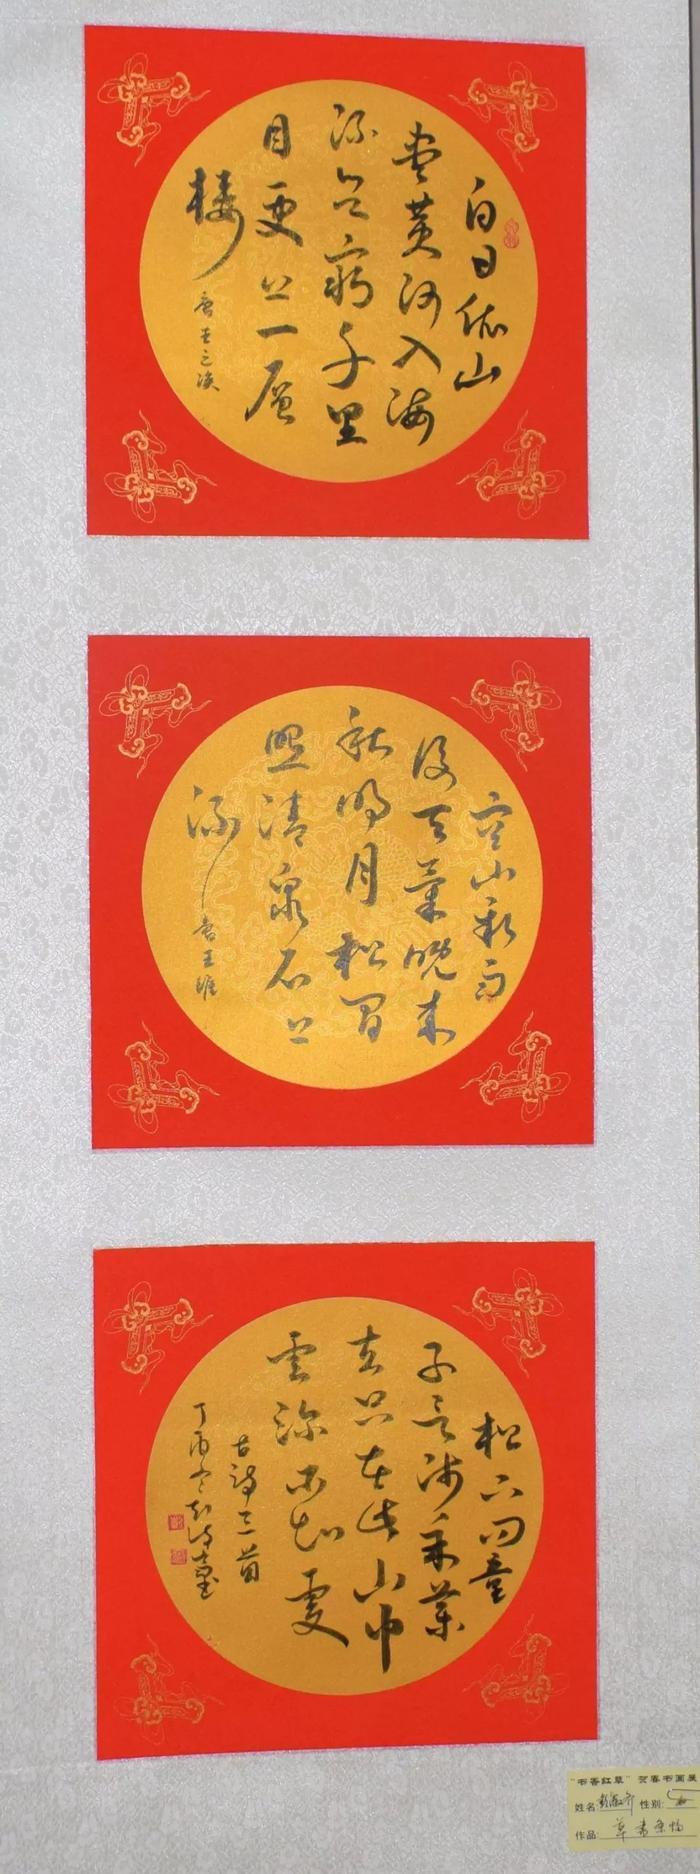 白日依山
尽黄河入海
流欲穷千里
目更上一层
楼
唐王之涣
空山新雨
后天气晚来
秋明月松间
照清泉石上
流
唐王维
松下问童
子言师采药
去只在此山中
云深不知处
古诗三首
丁酉冬
"书香红草"贺春书画展
姓名:
性别:
作品: 草书条幅